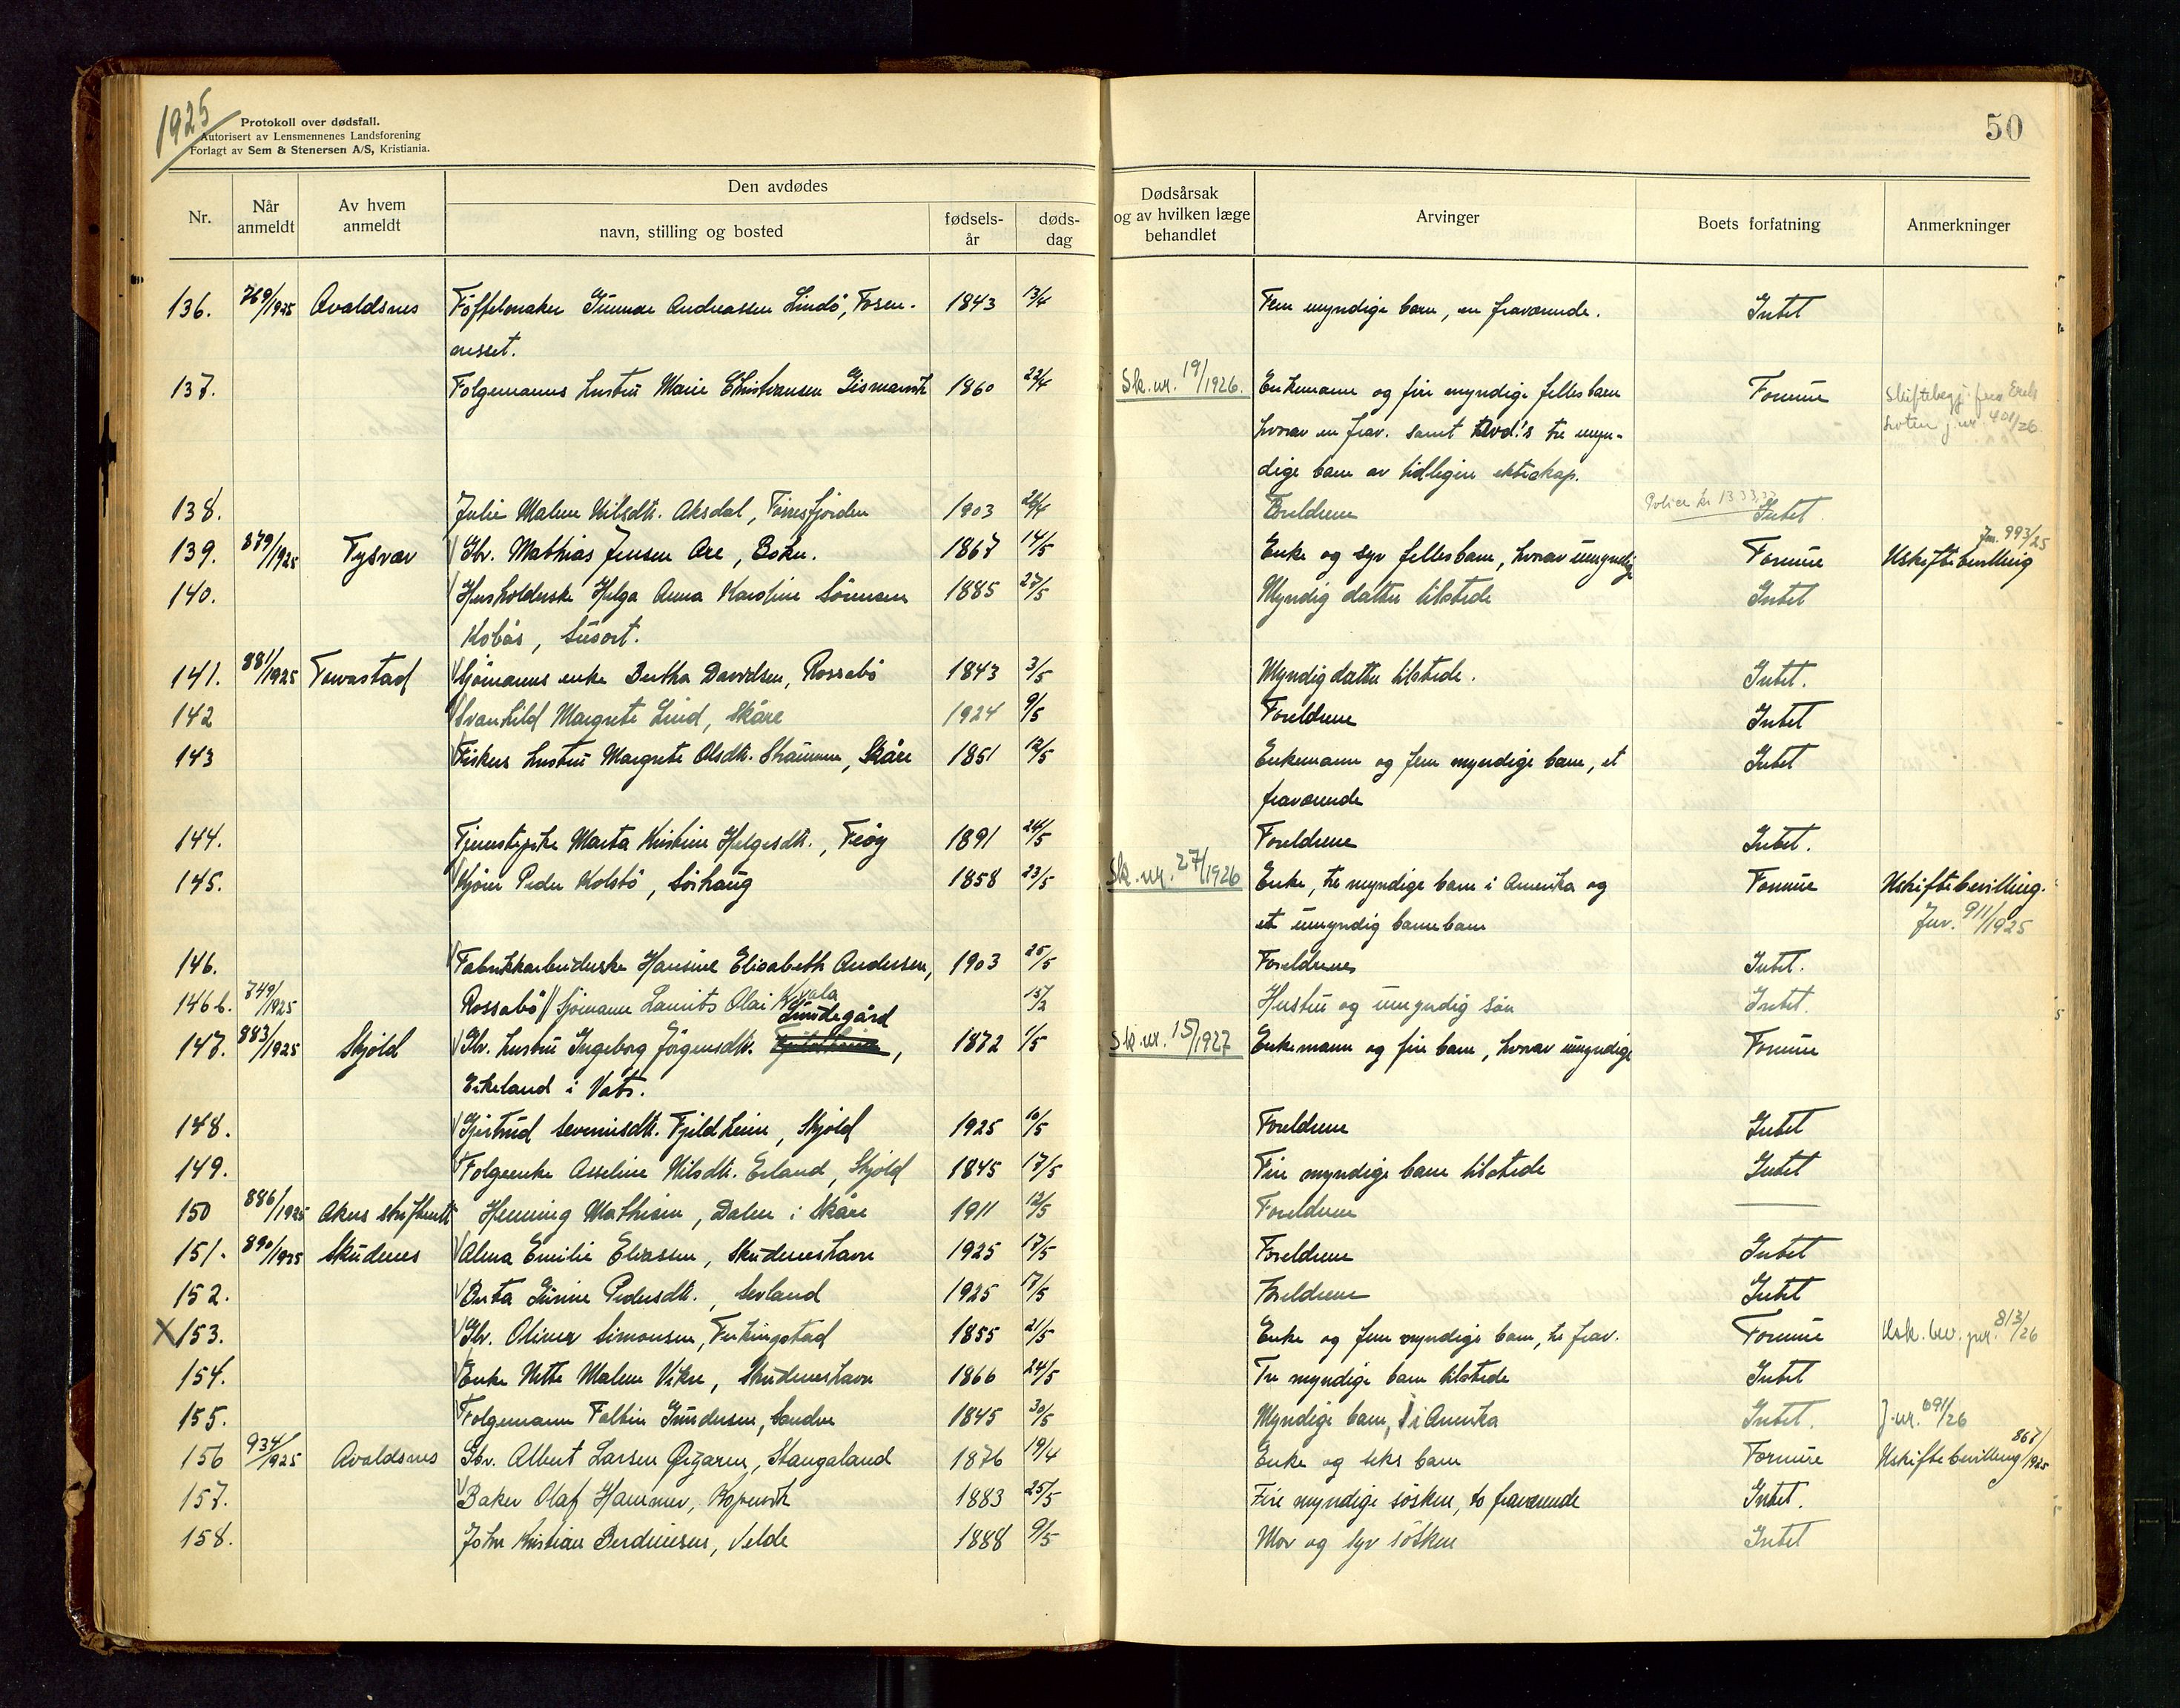 1925
Protokoll over dødsfall.
Autorisert av Lensmennenes Landsforening
Forlagt av Sem & Stenersen A/S, Kristiania.
50
Nr. Når anmeldt Av hvem anmeldt Den avdødes navn, stilling og bosted fødsels-år døds-dag Dødsårsak og av hvilken læge behandlet Arvinger Boets forfatning Anmerkninger
136. 769/1925 Avaldsnes Töffelmaker Gunnar Andreassen Lindö, Fosen- 1843 13/4 Fem myndige barn, en fraværende. Intet
nesset.
137. Folgemanns hustru Marie Christiansen Gismarvik 1860 22/4 Sk.nr. 19/1926. Enkemann og fire myndige fellesbarn Formue Skiftebegj. fra
hvorav en frav. samt avd.'s tre myn- j.nr. 401/26
dige barn av tidligere ekteskap.
138. Julie Malene Nilsdtr. Aksdal, Förresfjorden 1903 26/4 Foreldrene Polise kr 1333,33 Intet.
139. 879/1925 Tysvær Gbr. Mathias Jensen Are, Bokn. 1867 14/5 Enke og syv fellesbarn, hvorav umyndig Formue Uskiftebevilling Jnr. 993/25
140. Husholderske Helga Anna Karoline Sörensen 1885 27/5 Myndig datter tilstede Intet
Kobås, Susort.
141. 881/1925 Torvastad Sjömanns enke Bertha Davidsen, Rossabö 1843 3/5 Myndig datter tilstede. Intet.
142 Svanhild Margrete Lind, Skåre 1924 9/5 Foreldrene Intet
143 Fiskers hustru Margrete Olsdtr. Straumen, Skåre 1851 12/5 Enkemann og fem myndige barn, et Intet
fraværende
144. Tjenestepike Marta Kristine Helgesdtr., Feöy 1891 24/5 Foreldrene Intet.
145. Kjörer Peder Kolstö, Sörhaug 1858 23/5 Sk.nr. 27/1926 Enke, tre myndige barn i Amerika og Formue Uskiftebevilling.
et umyndig barnebarn Jnr. 911/1925
146. Fabrikkarbeiderske Hansine Elisabeth Andersen, 1903 25/5 Foreldrene Intet.
146b. 749/1925 Rossabö // Sjömann Laurits Olai Kvala 15/2 Hustru og umyndig sön Intet.
147. 883/1925 Skjold Gbr. hustru Ingeborg Jörgensdtr. Lundegård, 1872 1/5 Sk.nr. 15/1927 Enkemann og fire barn, hvorav umyndige Formue
Eikeland i Vats.
148. Gjertrud Severinsdtr. Fjeldheim, Skjold 1925 10/5 Foreldrene Intet
149. Folgeenke Asseline Nilsdtr. Erland, Skjold 1845 17/5 Fire myndige barn tilstede Intet
150 886/1925 Akers skifterett Henning Mathisen, Dalen i Skåre 1911 12/5 Foreldrene —
151. 890/1925 Skudenes Alma Emilie Eliassen, Skudeneshavn 1925 17/5 Foreldrene Intet
152. Berta Gurine Pedersdtr., Sevland 1925 17/5 Foreldrene Intet
X 153. Gbr. Oliver Simonsen, Ferkingstad 1855 21/5 Enke og fem myndige barn, tre frav. Formue Usk. bev. jnr. 813/26
154. Enke Mette Malene Vikre, Skudeneshavn 1866 24/5 Tre myndige barn tilstede Intet
155. Folgemann Gundersen, Sandve 1845 30/5 Myndige barn, 1 i Amerika Intet. J.nr. 691/26
156 934/1925 Avaldsnes Gbr. Albert Larsen Öygaren, Stangaland 1876 19/4 Enke og seks barn Formue Uskiftebevilling 867/1925
157. Baker Olaf Hammer, Kopervik 1883 25/5 Fire myndige sösken, to fraværende Intet.
158. Johan Kristian Berdinesen, Velde 1888 9/5 Mor og syv sösken Intet